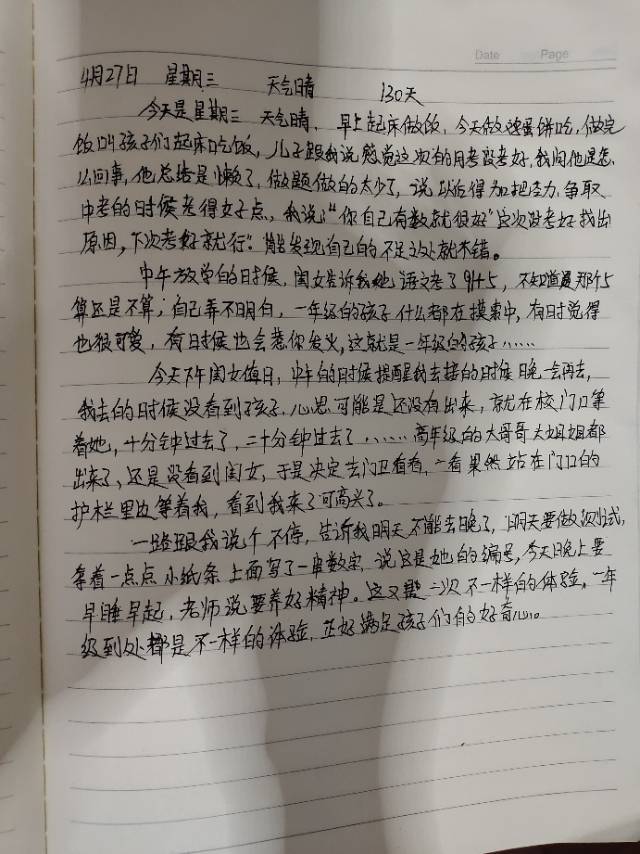 Date Page
4月27日 星期三 天气晴 130天
今天是星期三 天气晴,早上起床做饭,今天做鸡蛋饼吃,做完
饭叫孩子们起床吃饭,儿子跟我说感觉这次的月考没考好,我问他是怎
么回事,他总结是懒了,做题做的太少了,说以后得加把劲力,争取
中考的时候考得好点,我说:“你自己有数就很好”这次没考好找出
原因,下次考好就行”。能发现自己的不足之处就不错。
中午放学的时候,闺女告诉我她语文考了91+5,不知道是那个5
算还是不算;自己弄不明白,一年级的孩子什么都在摸索中,有时觉得
也很可爱,有时候也会惹你发火,这就是一年级的孩子……
今天下午闺女值日,中午的时候提醒我去接的时候晚一会再去,
我去的时候没看到孩子,心思可能是还没有出来,就在校门口等
着她,十分钟过去了,二十分钟过去了……高年级的大哥哥大姐姐都
出来了,还是没看到闺女,于是决定去门卫看看,一看果然站在门口的
护栏里边等着我,看到我来了可高兴了。
一路跟我说个不停,告诉我明天不能去晚了,明天要做测试,
拿着一点点小纸条上面写了一串数字,说这是她的编号,今天晚上要
早睡早起,老师说要养好精神。这又是一次不一样的体验,一年
级到处都是不一样的体验,正好满足孩子们的好奇心。